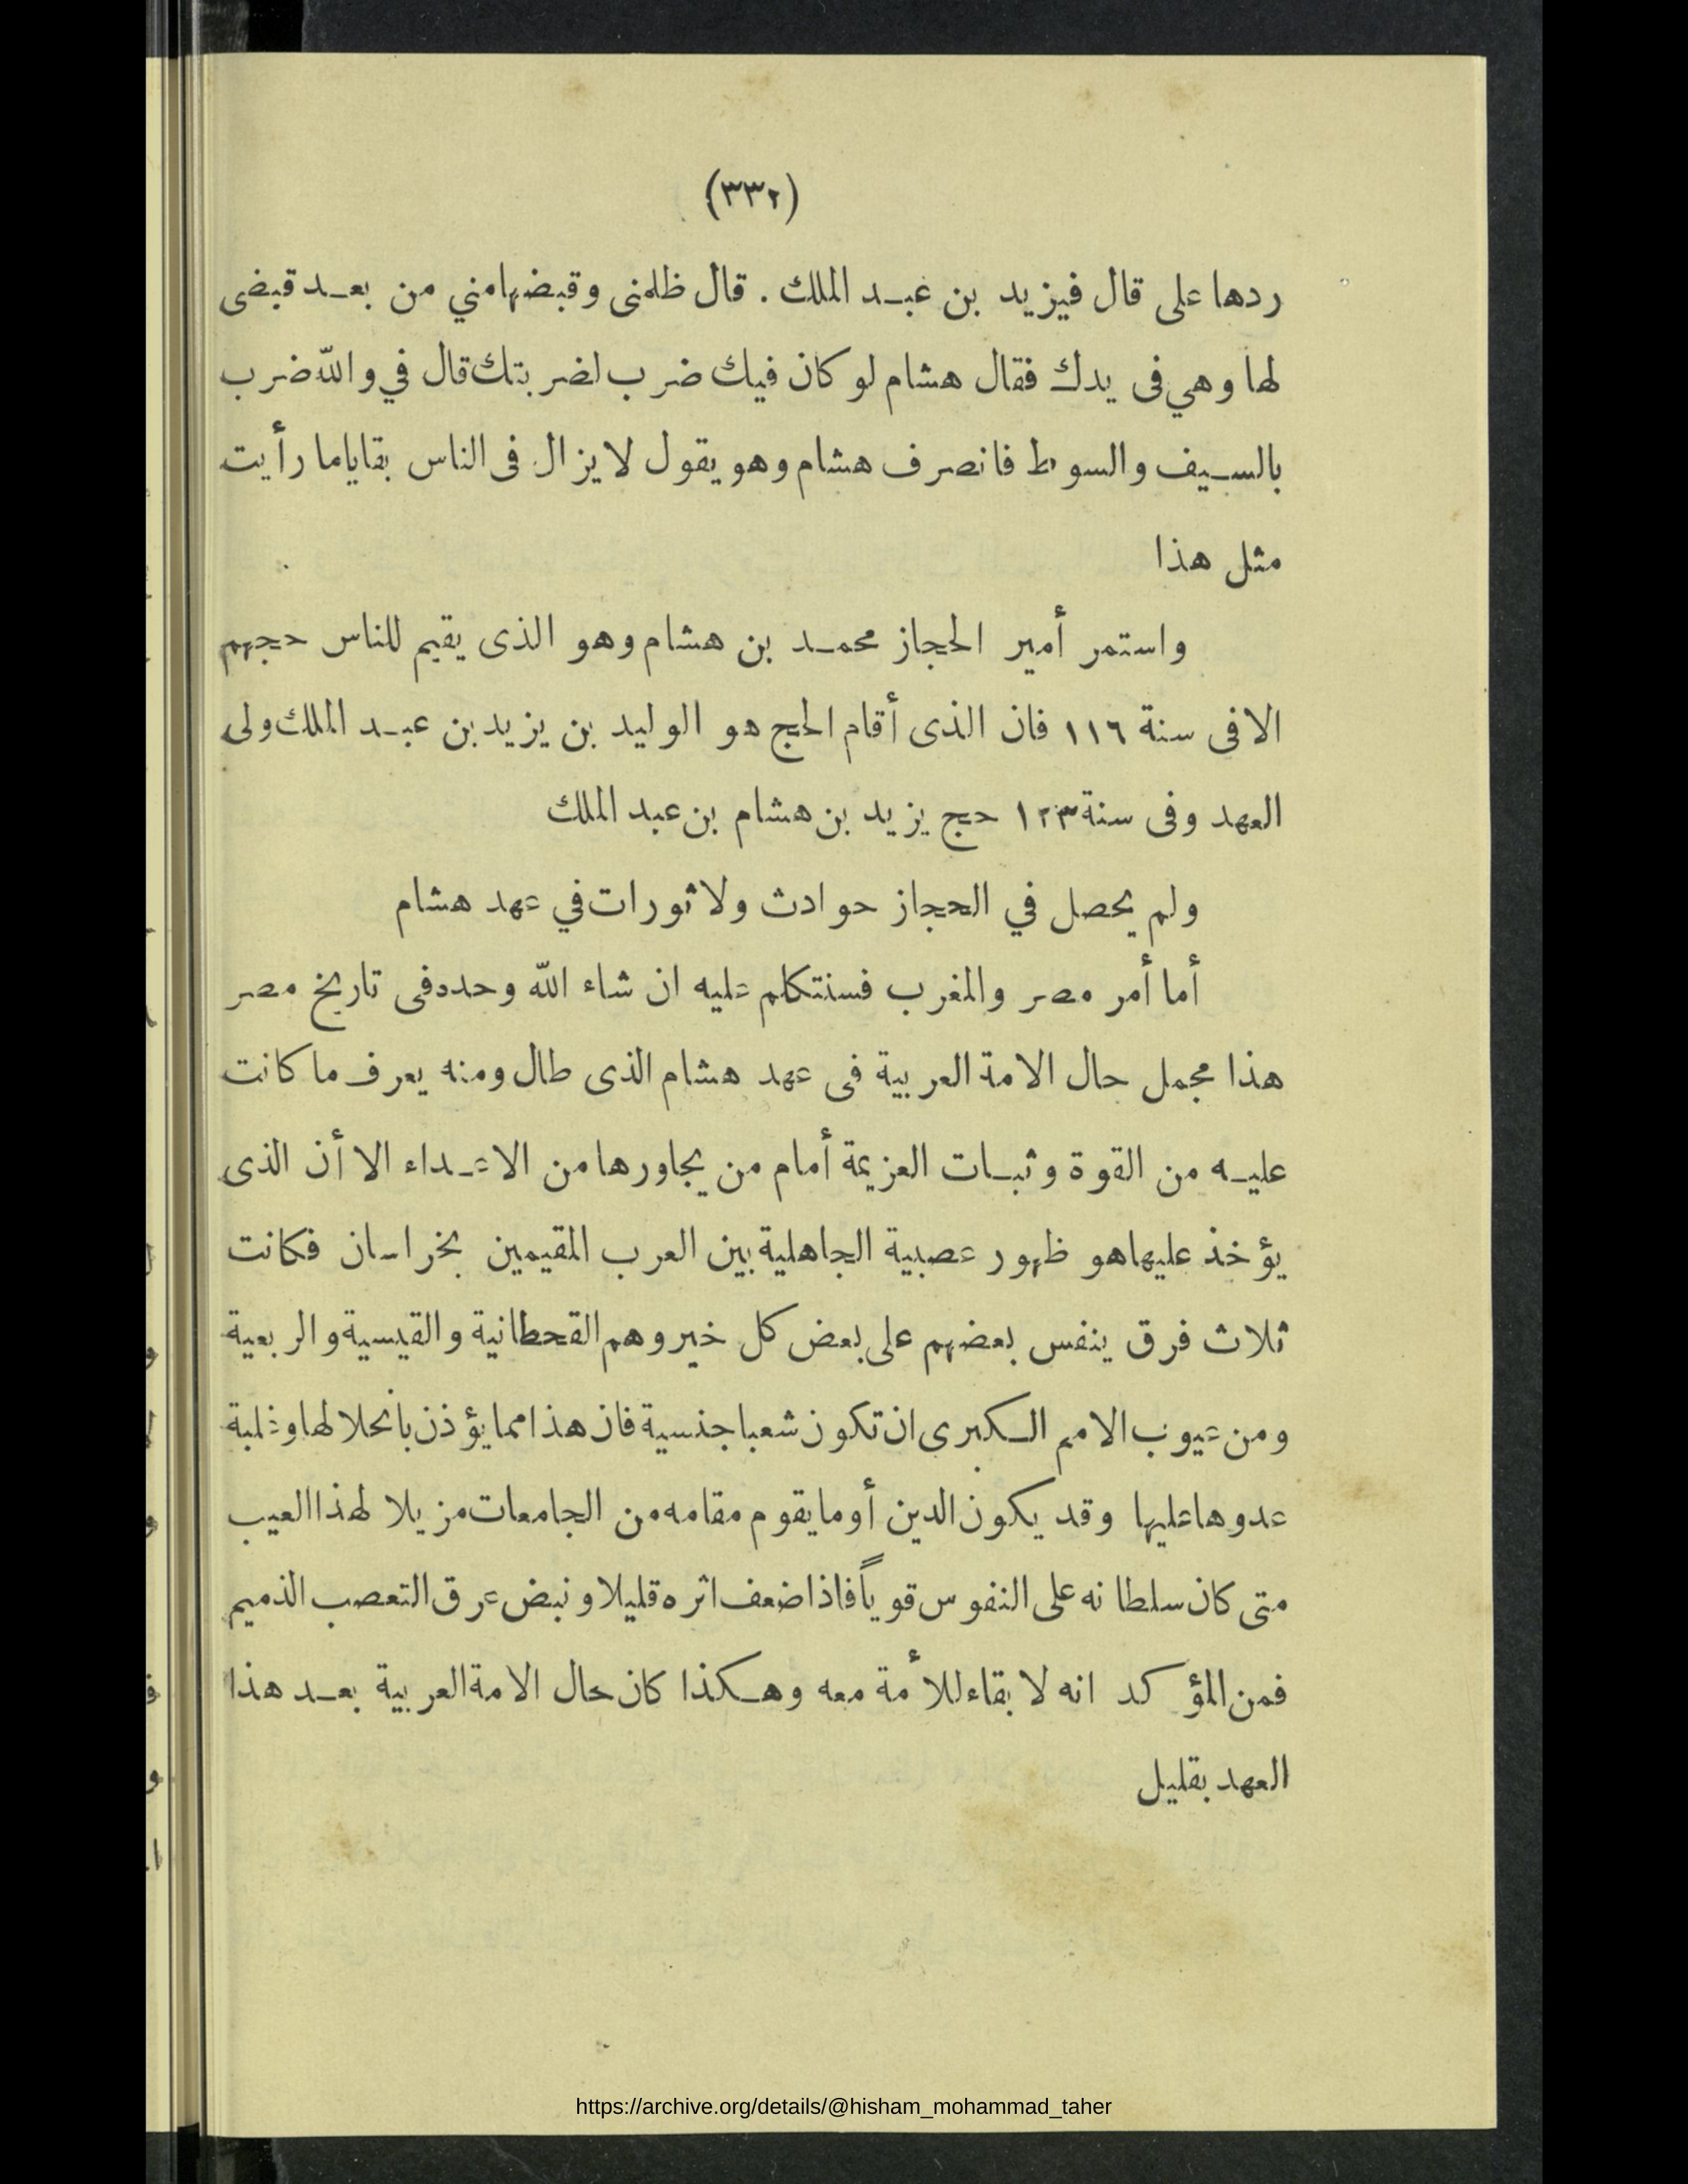 (٣٣٢)
ردها على قال فيزيد بن عبد الملك . قال ظلمنى وقبضهامني من بعد قبضى
لها وهي فى يدك فقال هشام لو كان فيك ضرب لضربتك قال في والله ضرب
بالسيف والسوط فانصرف هشام وهو يقول لا يزال فى الناس بقايا ما رأيت
مثل هذا
واستمر أمير الحجاز محمد بن هشام وهو الذى يقيم للناس حجهم
الا فى سنة ١١٦ فان الذى أقام الحج هو الوليد بن يزيد بن عبد الملك ولى
العهد وفى سنة ١٢٣ حج يزيد بن هشام بن عبد الملك
ولم يحصل في الحجاز حوادث ولا ثورات في عهد هشام
أما أمر مصر والمغرب فسنتكلم عليه ان شاء الله وحده فى تاريخ مصر
هذا مجمل حال الامة العربية فى عهد هشام الذى طال ومنه يعرف ما كانت
عليه من القوة وثبات العزيمة أمام من يجاورها من الاعداء الا أن الذى
يؤخذ عليها هو ظهور عصبية الجاهلية بين العرب المقيمين بخراسان فكانت
ثلاث فرق ينفس بعضهم على بعض كل خير وهم القحطانية والقيسية والربعية
ومن عيوب الامم الكبرى ان تكون شعبا جنسية فان هذا مما يؤذن بانحلالها وغلبة
عدوها عليها وقد يكون الدين أو ما يقوم مقامه من الجامعات مزيلا لهذا العيب
متى كان سلطانه على النفوس قوياً فاذا ضعف اثره قليلا ونبض عرق التعصب الذميم
فمن المؤكد انه لا بقاء للأمة معه وهكذا كان حال الامة العربية بعد هذا
العهد بقليل
https://archive.org/details/@hisham_mohammad_taher